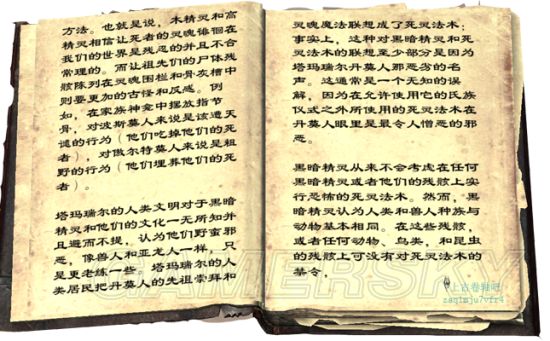 方法。也就是说，木精灵和高
精灵相信让死者的灵魂徘徊在
我们的世界是残忍的并且不合
常理的。而让祖先们的尸体残
骸陈列在灵魂围栏和骨灰槽中
则要更加的古怪和反感。例
如，在家族神龛中摆放指节
骨，对波斯莫人来说是该遭天
谴的行为（他们吃掉他们的死
者），对俄尔特莫人来说是粗
野的行为（他们埋葬他们的死
者）。
塔玛瑞尔的人类文明对于黑暗
精灵和他们的文化一无所知并
且避而不提，认为他们野蛮邪
恶，像兽人和亚龙人一样，只
是更老练一些。塔玛瑞尔的人
类居民把丹莫人的先祖崇拜和
灵魂魔法联想成了死灵法术；
事实上，这种对黑暗精灵和死
灵法术的联想至少部分是因为
塔玛瑞尔丹莫人那恶劣的名
声。这通常是一个无知的误
解，因为在允许使用它的氏族
仪式之外所使用的死灵法术在
丹莫人眼里是最令人憎恶的邪
恶。
黑暗精灵从来不会考虑在任何
黑暗精灵或者他们的残骸上实
行恐怖的死灵法术。然而，黑
暗精灵认为人类和兽人种族与
动物基本相同。在这些残骸，
或者任何动物、鸟类，和昆虫
的残骸上可没有对死灵法术的
禁令，
GAMERSKY
上古卷轴吧
zaq1mju7vfr4